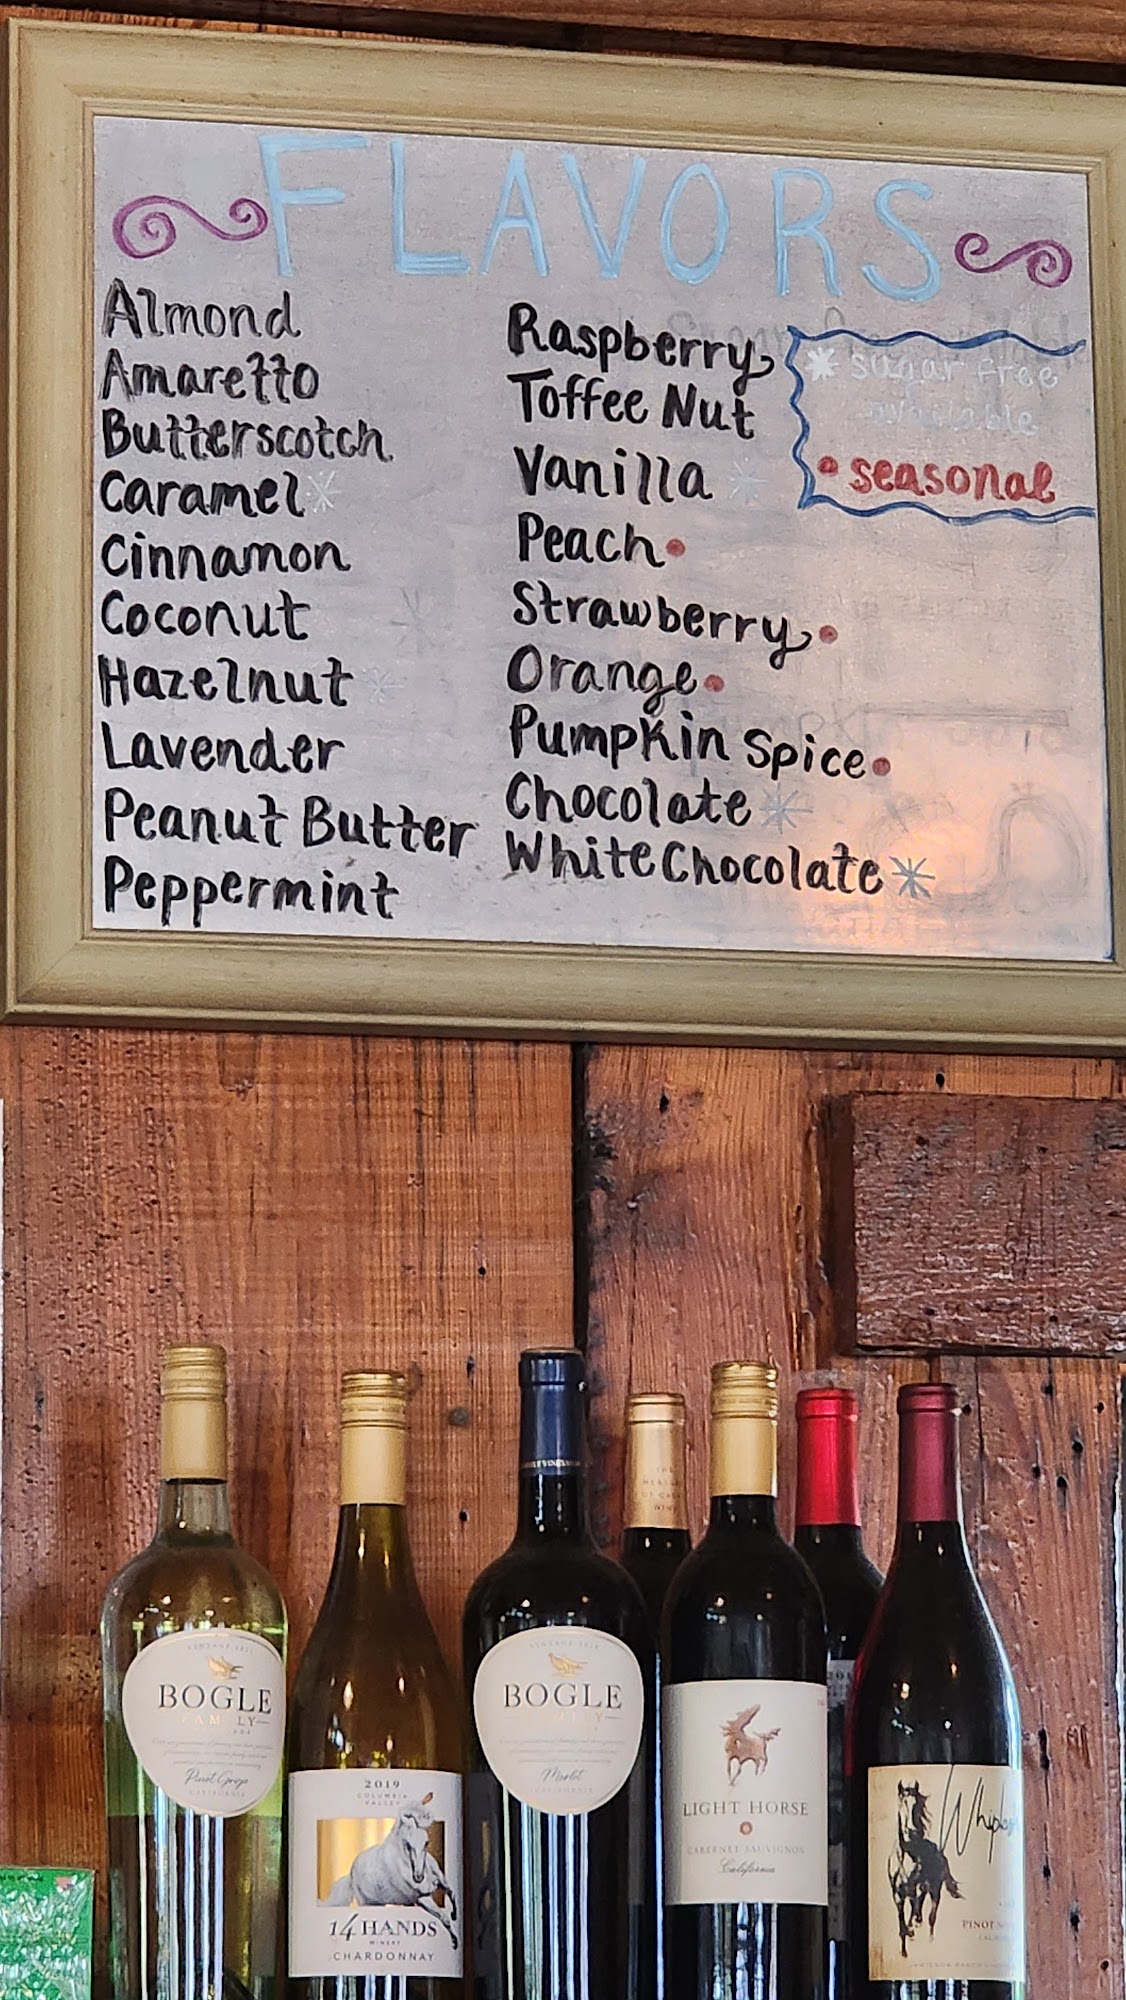 FLAVORS
Almond
Amaretto
Butterscotch
Caramel *
Cinnamon
Coconut
Hazelnut *
Lavender
Peanut Butter
Peppermint
Raspberry
Toffee Nut
Vanilla *
Peach •
Strawberry •
Orange •
Pumpkin Spice •
Chocolate *
White Chocolate *
* sugar free
available
• seasonal
BOGLE
FAMILY
Pinot Grigio
CALIFORNIA
2019
COLUMBIA
VALLEY
14 HANDS
WINERY
CHARDONNAY
BOGLE
FAMILY
Merlot
CALIFORNIA
LIGHT HORSE
CABERNET SAUVIGNON
California
PINOT